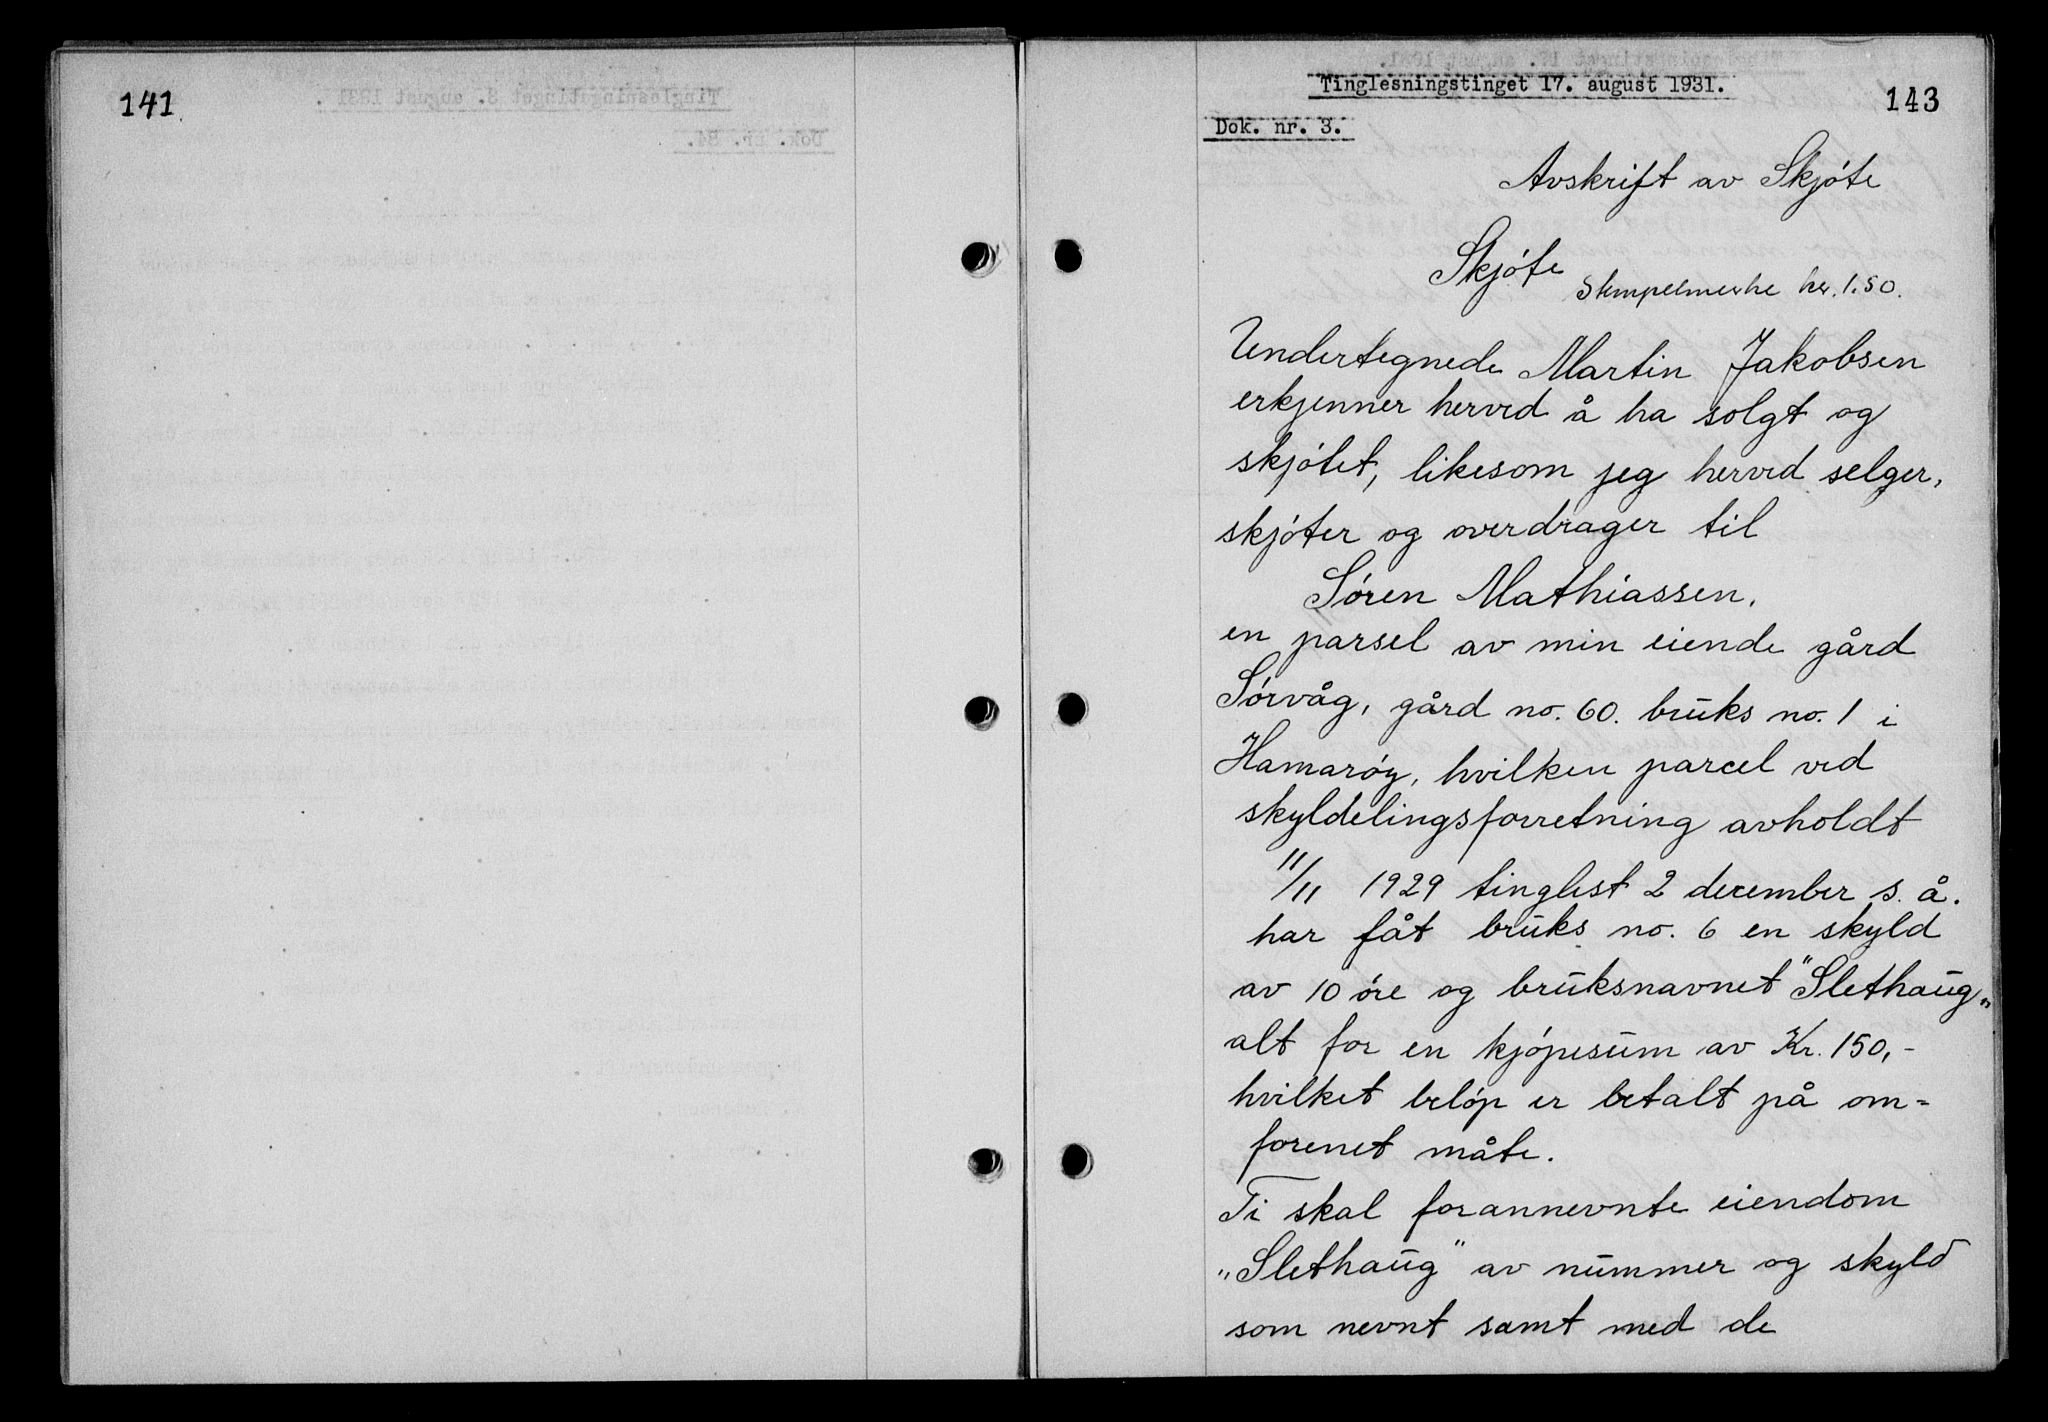 141
Tinglesningstinget 17. august 1931.
143
Dok. nr. 3.
Avskrift av Skjöte
Skjöte
Stempelmerke kr. 1.50.
Undertegnede Martin Jakobsen
erkjenner herved å ha solgt og
skjötet, likesom jeg herved selger,
skjöter og overdrager til
Sören Mathiassen,
en parsel av min eiende gård
Sörvåg, gård no. 60. bruks no. 1 i
Hamaröy, hvilken parcel ved
skyldelingsforretning avholdt
11/11 1929 tinglest 2 december s. å.
har fåt bruks no. 6 en skyld
av 10 öre og bruksnavnet "Slethaug"
alt for en kjöpesum av Kr. 150,-
hvilket belöp er betalt på om=
forenet måte.
Ti skal forannevnte eiendom
"Slethaug" av nummer og skyld
som nevnt samt med de